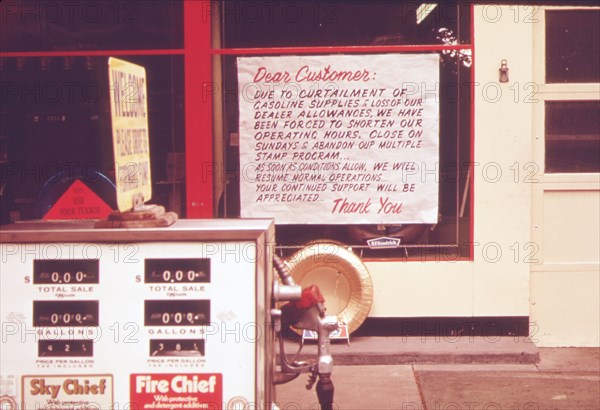 Dear Customer:
DUE TO CURTAILMENT OF
GASOLINE SUPPLIES & LOSS OF OUR
DEALER ALLOWANCES, WE HAVE
BEEN FORCED TO SHORTEN OUR
OPERATING HOURS, CLOSE ON
SUNDAYS & ABANDON OUR MULTIPLE
STAMP PROGRAM...
AS SOON AS CONDITIONS ALLOW, WE WILL
RESUME NORMAL OPERATIONS...
YOUR CONTINUED SUPPORT WILL BE
APPRECIATED...
Thank You
WELCOME
BFGoodrich
$ 0.00
TOTAL SALE
0.0
GALLONS
PRICE PER GALLON
Sky Chief
With protective
$ 0.00
TOTAL SALE
0.0
GALLONS
PRICE PER GALLON
Fire Chief
With protective
and detergent additives